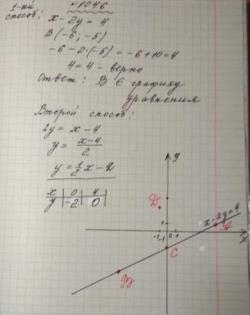 1-ый способ:
№1046
x - 2y = 4
B (-6; -5)
-6 - 2·(-5) = -6 + 10 = 4
4 = 4 - верно
Ответ: B ∈ графику
уравнения
Второй способ:
2y = x - 4
y = x-4/2
y = 1/2 x - 2
x | 0 | 4
y | -2 | 0
y
D
x-2y=4
A
x
C
B